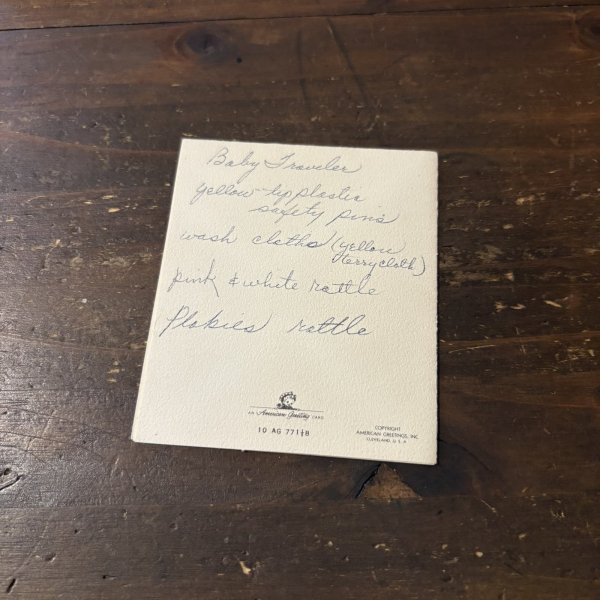 Baby Traveler
yellow-tip plastic
safety pins
wash cloths (yellow
terrycloth)
pink & white rattle
Plakies rattle
AN American Greeting CARD
10 AG 771-8
COPYRIGHT
AMERICAN GREETINGS, INC.
CLEVELAND, U.S.A.